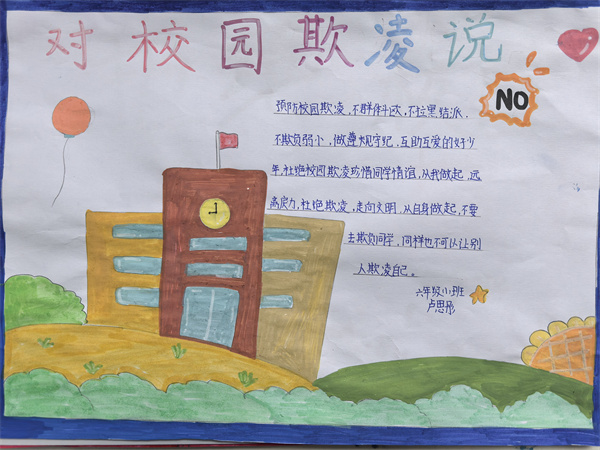 对校园欺凌说
NO
预防校园欺凌，不群体斗殴，不拉黑结派，
不欺负弱小，做遵规守纪，互助互爱的好少
年，杜绝校园欺凌珍惜同学情谊，从我做起，远
离暴力，杜绝欺凌，走向文明，从自身做起，不要
去欺负同学，同样也不可以让别
人欺凌自己。
六年级小班
卢思彤